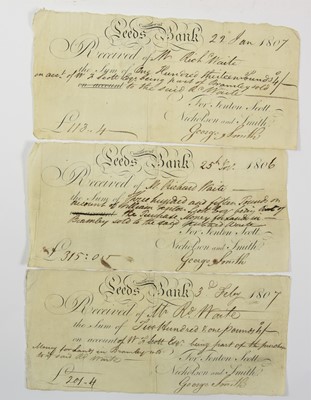 Leeds Bank 22 Jan 1807
Received of Mr Richd Waite
the Sum of One Hundred thirteen pounds 4/
on acct of W F Scott Esqr being part of Bramley sold
on account to the said Rd Waite
For Fenton Scott
Nicholson and Smith
George Smith
£113.4
Leeds Bank 25th 1806
Received of Mr Richard Waite
the Sum of Three hundred and fifteen Pounds on
account of William Fenton Scott Esqr being part of
the Purchase Money for Lands in
Bramley sold to the said Richard Waite
For Fenton Scott
Nicholson and Smith
George Smith
£315:0:
Leeds Bank 3d Feby 1807
Received of Mr Rd Waite
the Sum of Two Hundred & one pounds 4/
on account of W F Scott Esqr being part of the purchase
Money for Lands in Bramley sold
to said Rd Waite
For Fenton Scott
Nicholson and Smith
George Smith
£201.4